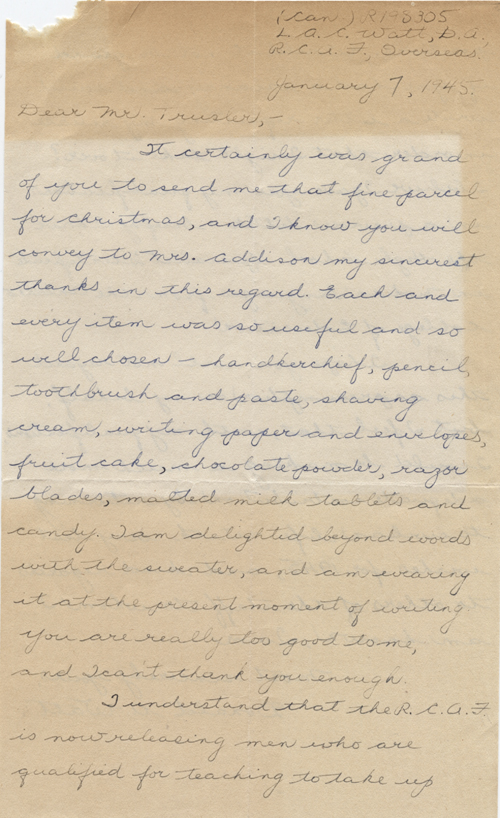 (Can.) R198305
L.A.C. Watt, D.A.,
R.C.A.F., Overseas.
January 7, 1945.
Dear Mr. Trusler,-
It certainly was grand
of you to send me that fine parcel
for christmas, and I know you will
convey to Mrs. Addison my sincerest
thanks in this regard. Each and
every item was so useful and so
well chosen - handkerchief, pencil,
toothbrush and paste, shaving
cream, writing paper and envelopes,
fruit cake, chocolate powder, razor
blades, malted milk tablets and
candy. I am delighted beyond words
with the sweater, and am wearing
it at the present moment of writing
You are really too good to me,
and I can't thank you enough.
I understand that the R.C.A.F.
is now releasing men who are
qualified for teaching to take up